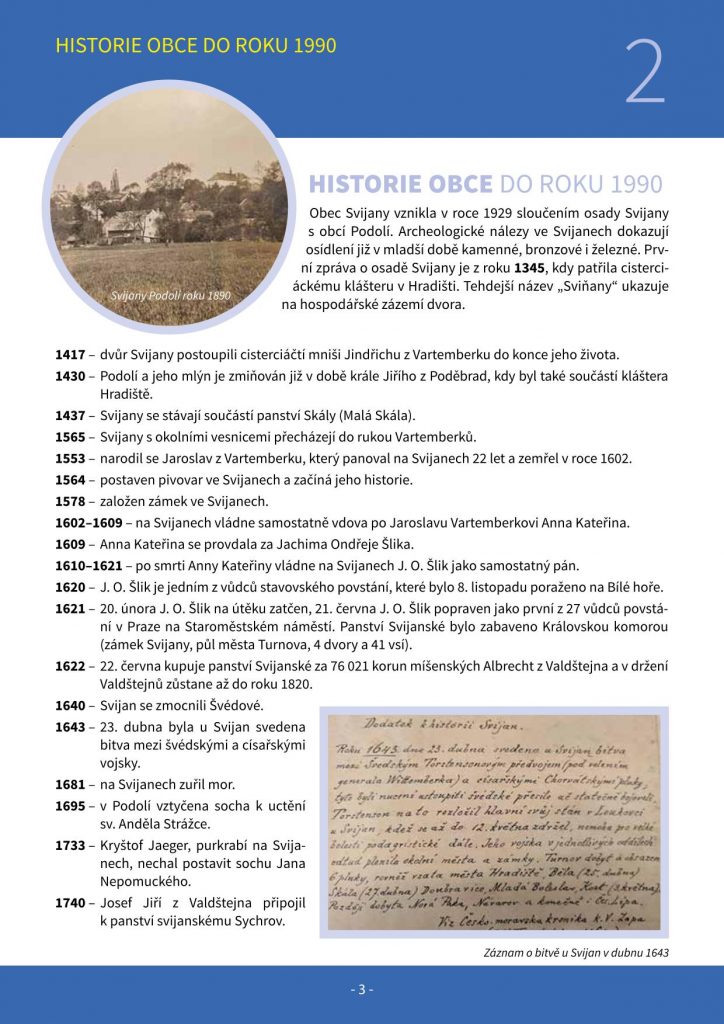 HISTORIE OBCE DO ROKU 1990
2
Svijany Podolí roku 1890
HISTORIE OBCE DO ROKU 1990
Obec Svijany vznikla v roce 1929 sloučením osady Svijany
s obcí Podolí. Archeologické nálezy ve Svijanech dokazují
osídlení již v mladší době kamenné, bronzové i železné. Prv-
ní zpráva o osadě Svijany je z roku 1345, kdy patřila cisterci-
áckému klášteru v Hradišti. Tehdejší název „Sviňany“ ukazuje
na hospodářské zázemí dvora.
1417 – dvůr Svijany postoupili cisterciáčtí mniši Jindřichu z Vartemberku do konce jeho života.
1430 – Podolí a jeho mlýn je zmiňován již v době krále Jiřího z Poděbrad, kdy byl také součástí kláštera
Hradiště.
1437 – Svijany se stávají součástí panství Skály (Malá Skála).
1565 – Svijany s okolními vesnicemi přecházejí do rukou Vartemberků.
1553 – narodil se Jaroslav z Vartemberku, který panoval na Svijanech 22 let a zemřel v roce 1602.
1564 – postaven pivovar ve Svijanech a začíná jeho historie.
1578 – založen zámek ve Svijanech.
1602–1609 – na Svijanech vládne samostatně vdova po Jaroslavu Vartemberkovi Anna Kateřina.
1609 – Anna Kateřina se provdala za Jachima Ondřeje Šlika.
1610–1621 – po smrti Anny Kateřiny vládne na Svijanech J. O. Šlik jako samostatný pán.
1620 – J. O. Šlik je jedním z vůdců stavovského povstání, které bylo 8. listopadu poraženo na Bílé hoře.
1621 – 20. února J. O. Šlik na útěku zatčen, 21. června J. O. Šlik popraven jako první z 27 vůdců povstá-
ní v Praze na Staroměstském náměstí. Panství Svijanské bylo zabaveno Královskou komorou
(zámek Svijany, půl města Turnova, 4 dvory a 41 vsí).
1622 – 22. června kupuje panství Svijanské za 76 021 korun míšenských Albrecht z Valdštejna a v držení
Valdštejnů zůstane až do roku 1820.
1640 – Svijan se zmocnili Švédové.
1643 – 23. dubna byla u Svijan svedena
bitva mezi švédskými a císařskými
vojsky.
1681 – na Svijanech zuřil mor.
1695 – v Podolí vztyčena socha k uctění
sv. Anděla Strážce.
1733 – Kryštof Jaeger, purkrabí na Svija-
nech, nechal postavit sochu Jana
Nepomuckého.
1740 – Josef Jiří z Valdštejna připojil
k panství svijanskému Sychrov.
Dodatek k historii Svijan.
Roku 1643 dne 23. dubna svedena u Svijan bitva
mezi Švedským Torstensonovým předvojem (pod velením
generala Wittemberka) a císařskými Chorvátskými pluky,
tyto byli nuceni ustoupiti švédské přesile ač statečně bojovali.
Torstenson na to rozložil hlavní svůj stan v Loukově
u Svijan, kdež se až do 12. května zdržel, nemoha pro velké
bolesti podagristické dále. Jeho vojska v jednotlivých oddílech
odtud plenila okolní města a zámky. Turnov dobyt a obsazen
6 pluky, rovněž vzata města Hradiště, Bělá (25. dubna)
Skála (27. dubna) Doubravice, Mladá Boleslav, Kost (3 května).
Později dobyta Nová Paka, Návarov a konečně i Čes. Lípa.
Viz Česko-moravska kronika k. V. Zapa
Záznam o bitvě u Svijan v dubnu 1643
- 3 -